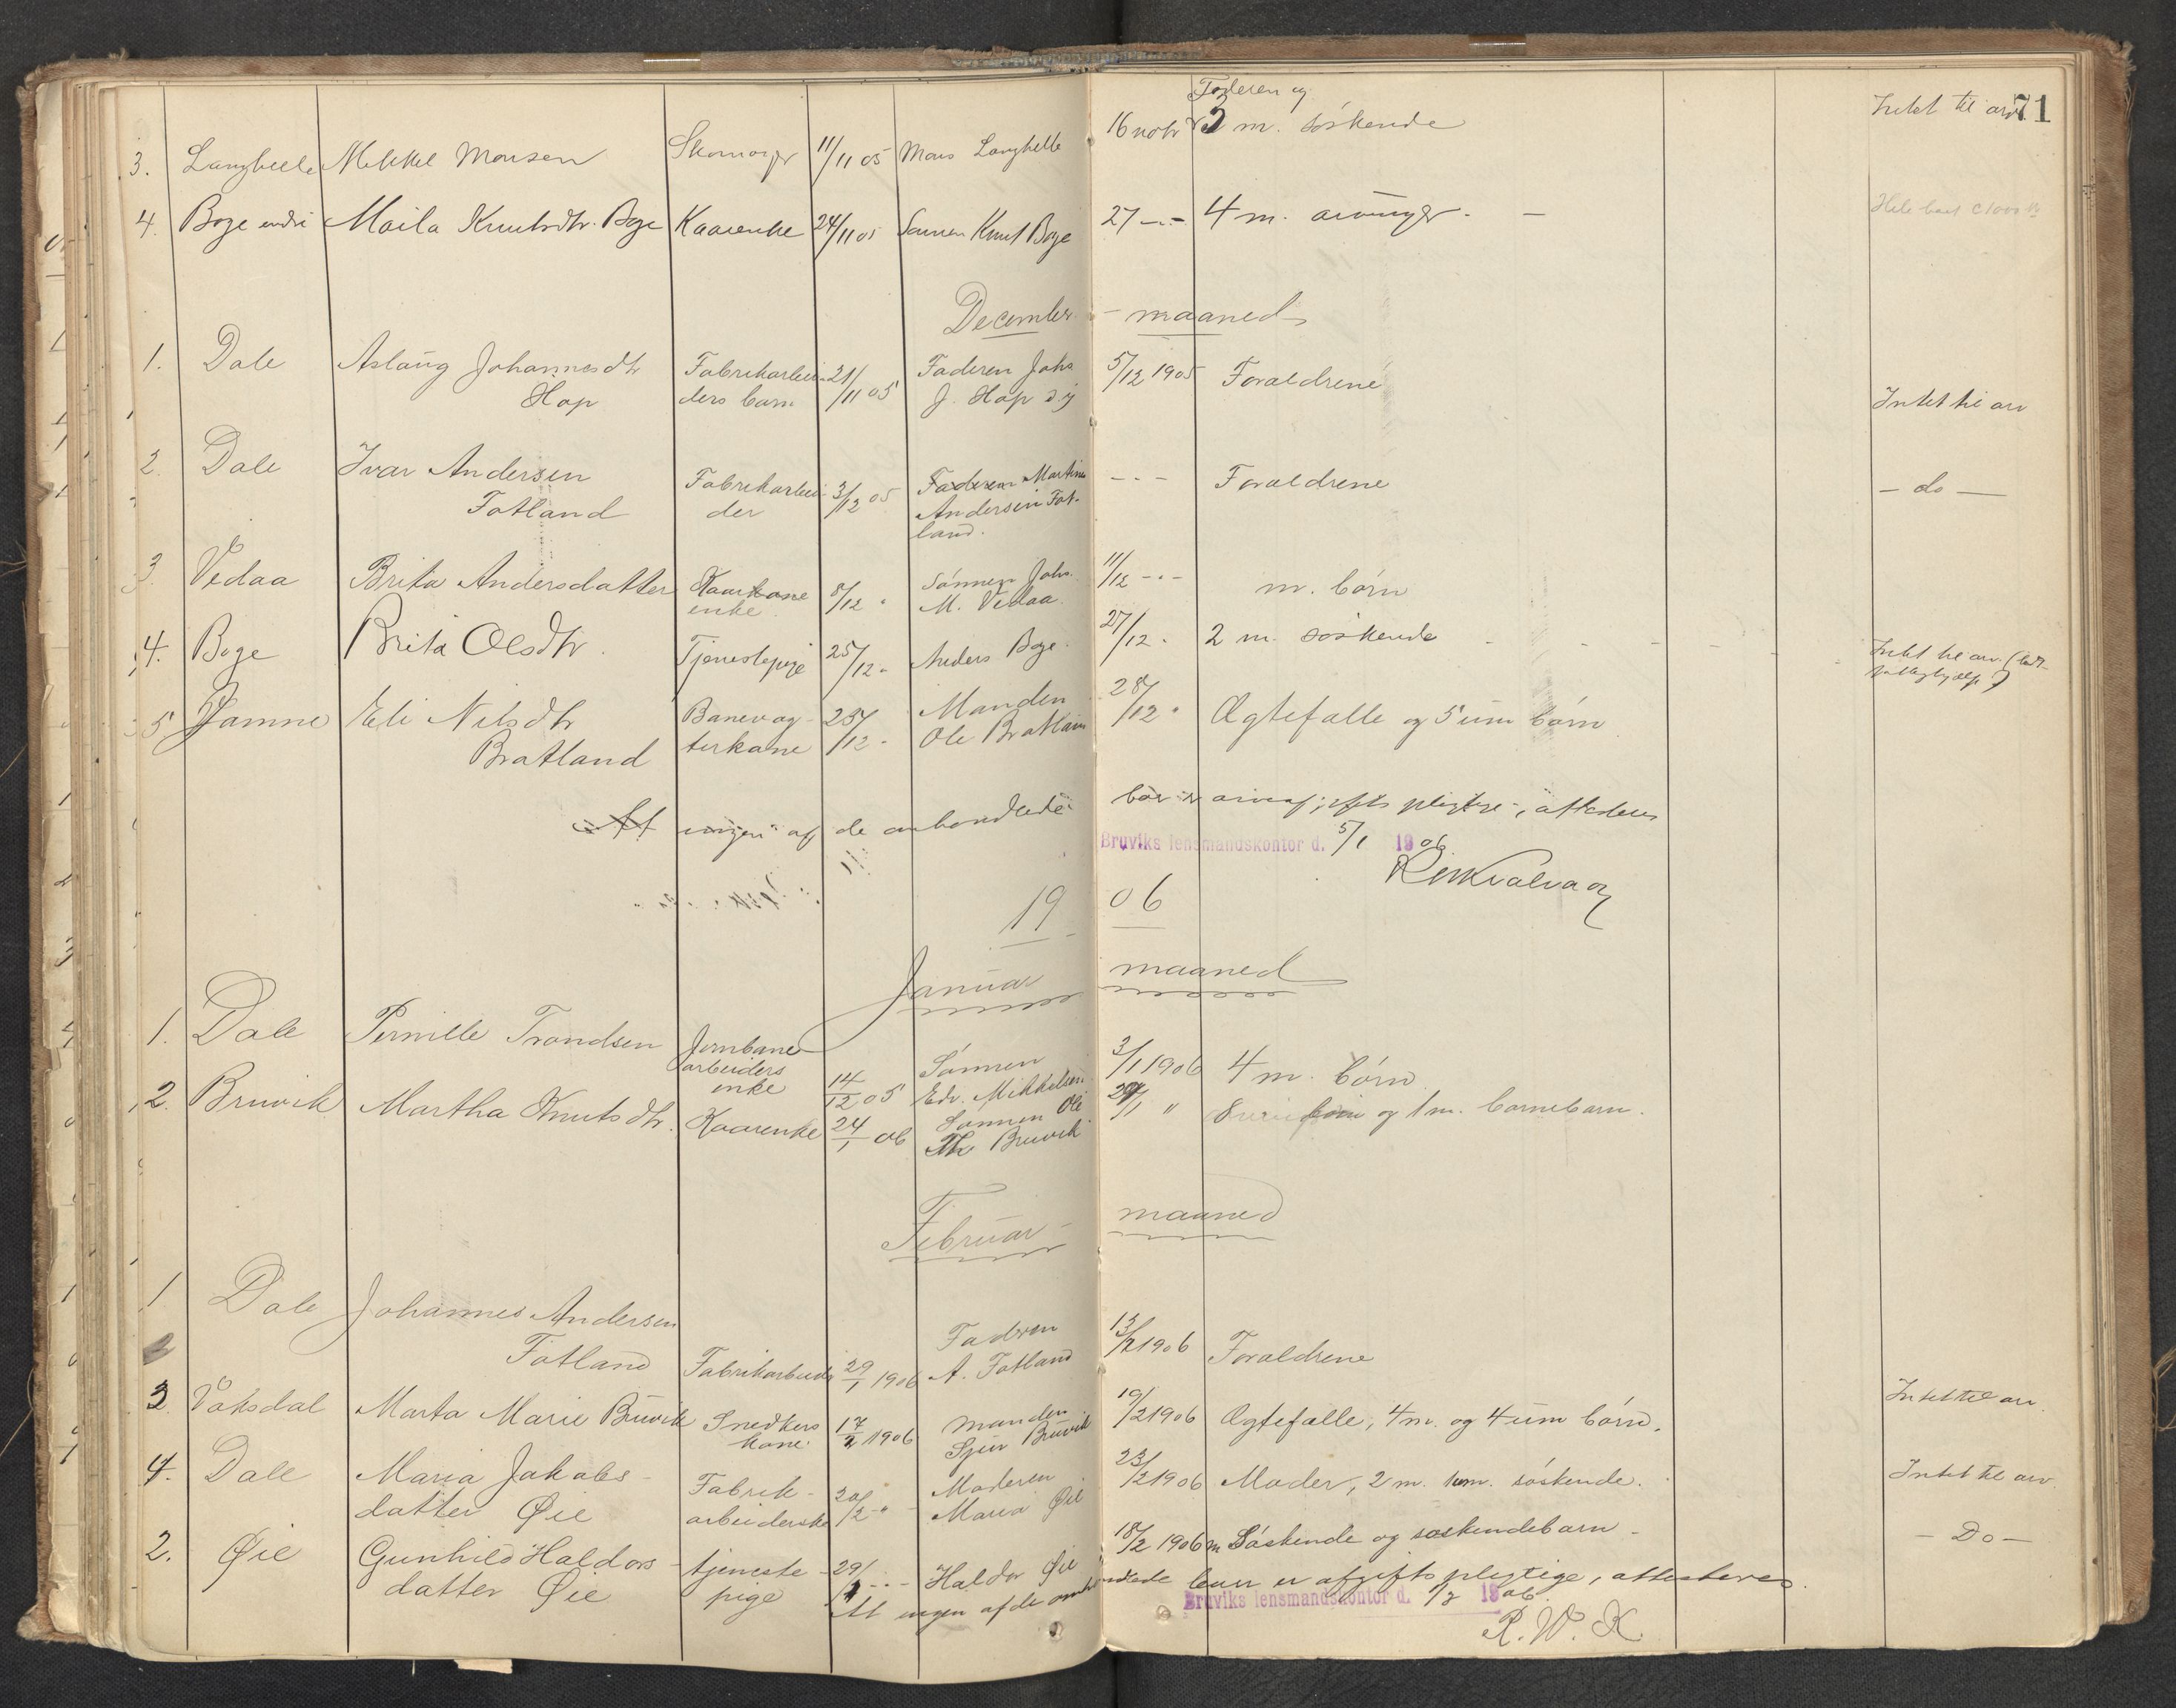 71
Faderen og
3. Langhelle Mikkel Monsen Skomager 11/11 05 Mons Langhelle 16 novbr 2 m. söskende Intet til arv
4. Boge indri Maila Knutsdtr. Boge Kaarenke 24/11 05 Sønnen Knut Boge 27 -.- 4 m. arvinger. -
December - maaned
1. Dale Aslaug Johannesdtr Fabrikarbei- 21/11 05 Faderen Johs 5/12 1905 Foraldrene
Hop ders barn J. Hop Intet til arv
2. Dale Ivar Andersen Fabrikarbei- 3/12 05 Faderen Martinus - - - Foraldrene - do -
Fotland der Andersen Fot-
land.
3. Vedaa Brita Andersdatter Kaarkone 8/12 " Sönnen Johs. 11/12 - - - m. börn
enke M. Vedaa.
4. Boge Brita Olsdtr. Tjenestepige 25/12 " Anders Boge. 27/12 " 2 m. söskende - - - - Intet til arv
5 Jamne Eli Nilsdtr Banevog- 23/12 - Manden 28/12 " Ægtefalle og 5 um börn
Bratland terkone Ole Bratland
At ingen af de anbondtede boer er arveafgifts pligtige, attesteres
Bruviks lensmandskontor d. 5/1 1906
19 06
Januar maaned
1. Dale Pernille Trondsen Jernbane- Sönnen 3/1 1906 4 m. börn
arbeiders
enke 14/12 05 Edv. Mikkelsen
2. Bruvik Martha Knutsdtr. Kaarenke 24/1 06 Sønnen Ole 29/1 " og 1 m. barnebarn.
Bruvik
Februar - maaned
1 Dale Johannes Andersen Faderen 13/2 1906 Foraldrene
Fotland Fabrikarbeider 29/1 1906 A. Fotland
3. Vaksdal Marta Marie Bruvik Snedkers 17/2 1906 manden 19/2 1906 Ægtefalle, 4 m. og 4 um börn. Intet til arv.
kone. Sjur Bruvik
4. Dale Maria Jakobs- Fabrik- 20/2 -"- Moderen 23/2 1906 Moder, 2 m. 1 um. söskende. Intet til arv
datter Øie arbeiderske Maria Øie
2. Øie Gunhild Haldors- tjeneste- 29/1 - - - Haldor Øie 18/2 1906 m Söskende og soskendebarn - - Do -
datter Øie pige
At ingen af de omhandlede boer er afgifts pligtige, attesteres.
Bruviks lensmandskontor d. 1/3 1906.
R. W. K.